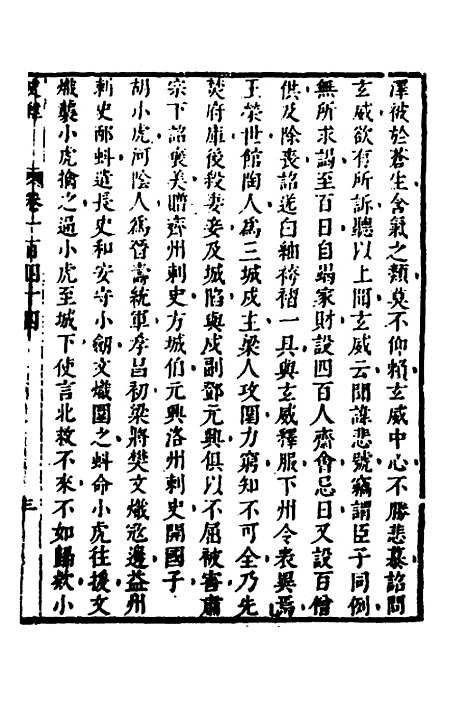 澤被於蒼生含氣之類莫不仰賴玄威中心不勝悲慕詔問
玄威欲有所訴聽以上聞玄威云聞諱悲號竊謂臣子同例
無所求謁至百日自竭家財設四百人齋會忌日又設百僧
供及除喪詔送白紬袴褶一具與玄威釋服下州令表異焉
王榮世館陶人爲三城戍主梁人攻圍力窮知不可全乃先
焚府庫後殺妻妾及城陷與戍副鄧元興俱以不屈被害肅
宗下詔褒美贈齊州刺史方城伯元興洛州刺史開國子
胡小虎河陰人爲晉壽統軍孝昌初梁將樊文熾寇邊益州
刺史邴蚪遣長史和安守小劒文熾圍之蚪命小虎往援文
熾襲小虎擒之逼小虎至城下使言北救不來不如歸款小
卷一百四十四
三